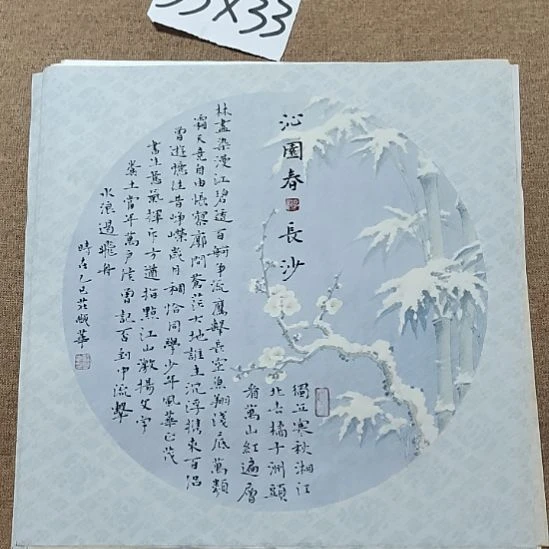 33X33
沁園春
長沙
獨立寒秋湘江
北去橘子洲頭
看萬山紅遍層
林盡染漫江碧透百舸争流鷹擊長空魚翔淺底萬類
霜天竟自由悵寥廓問蒼茫大地誰主沉浮携來百侣
曾遊憶往昔崢嶸歲月稠恰同學少年風華正茂
書生意氣揮斥方遒指點江山激揚文字
糞土當年萬户侯曾記否到中流擊
水浪遏飛舟
時在乙巳